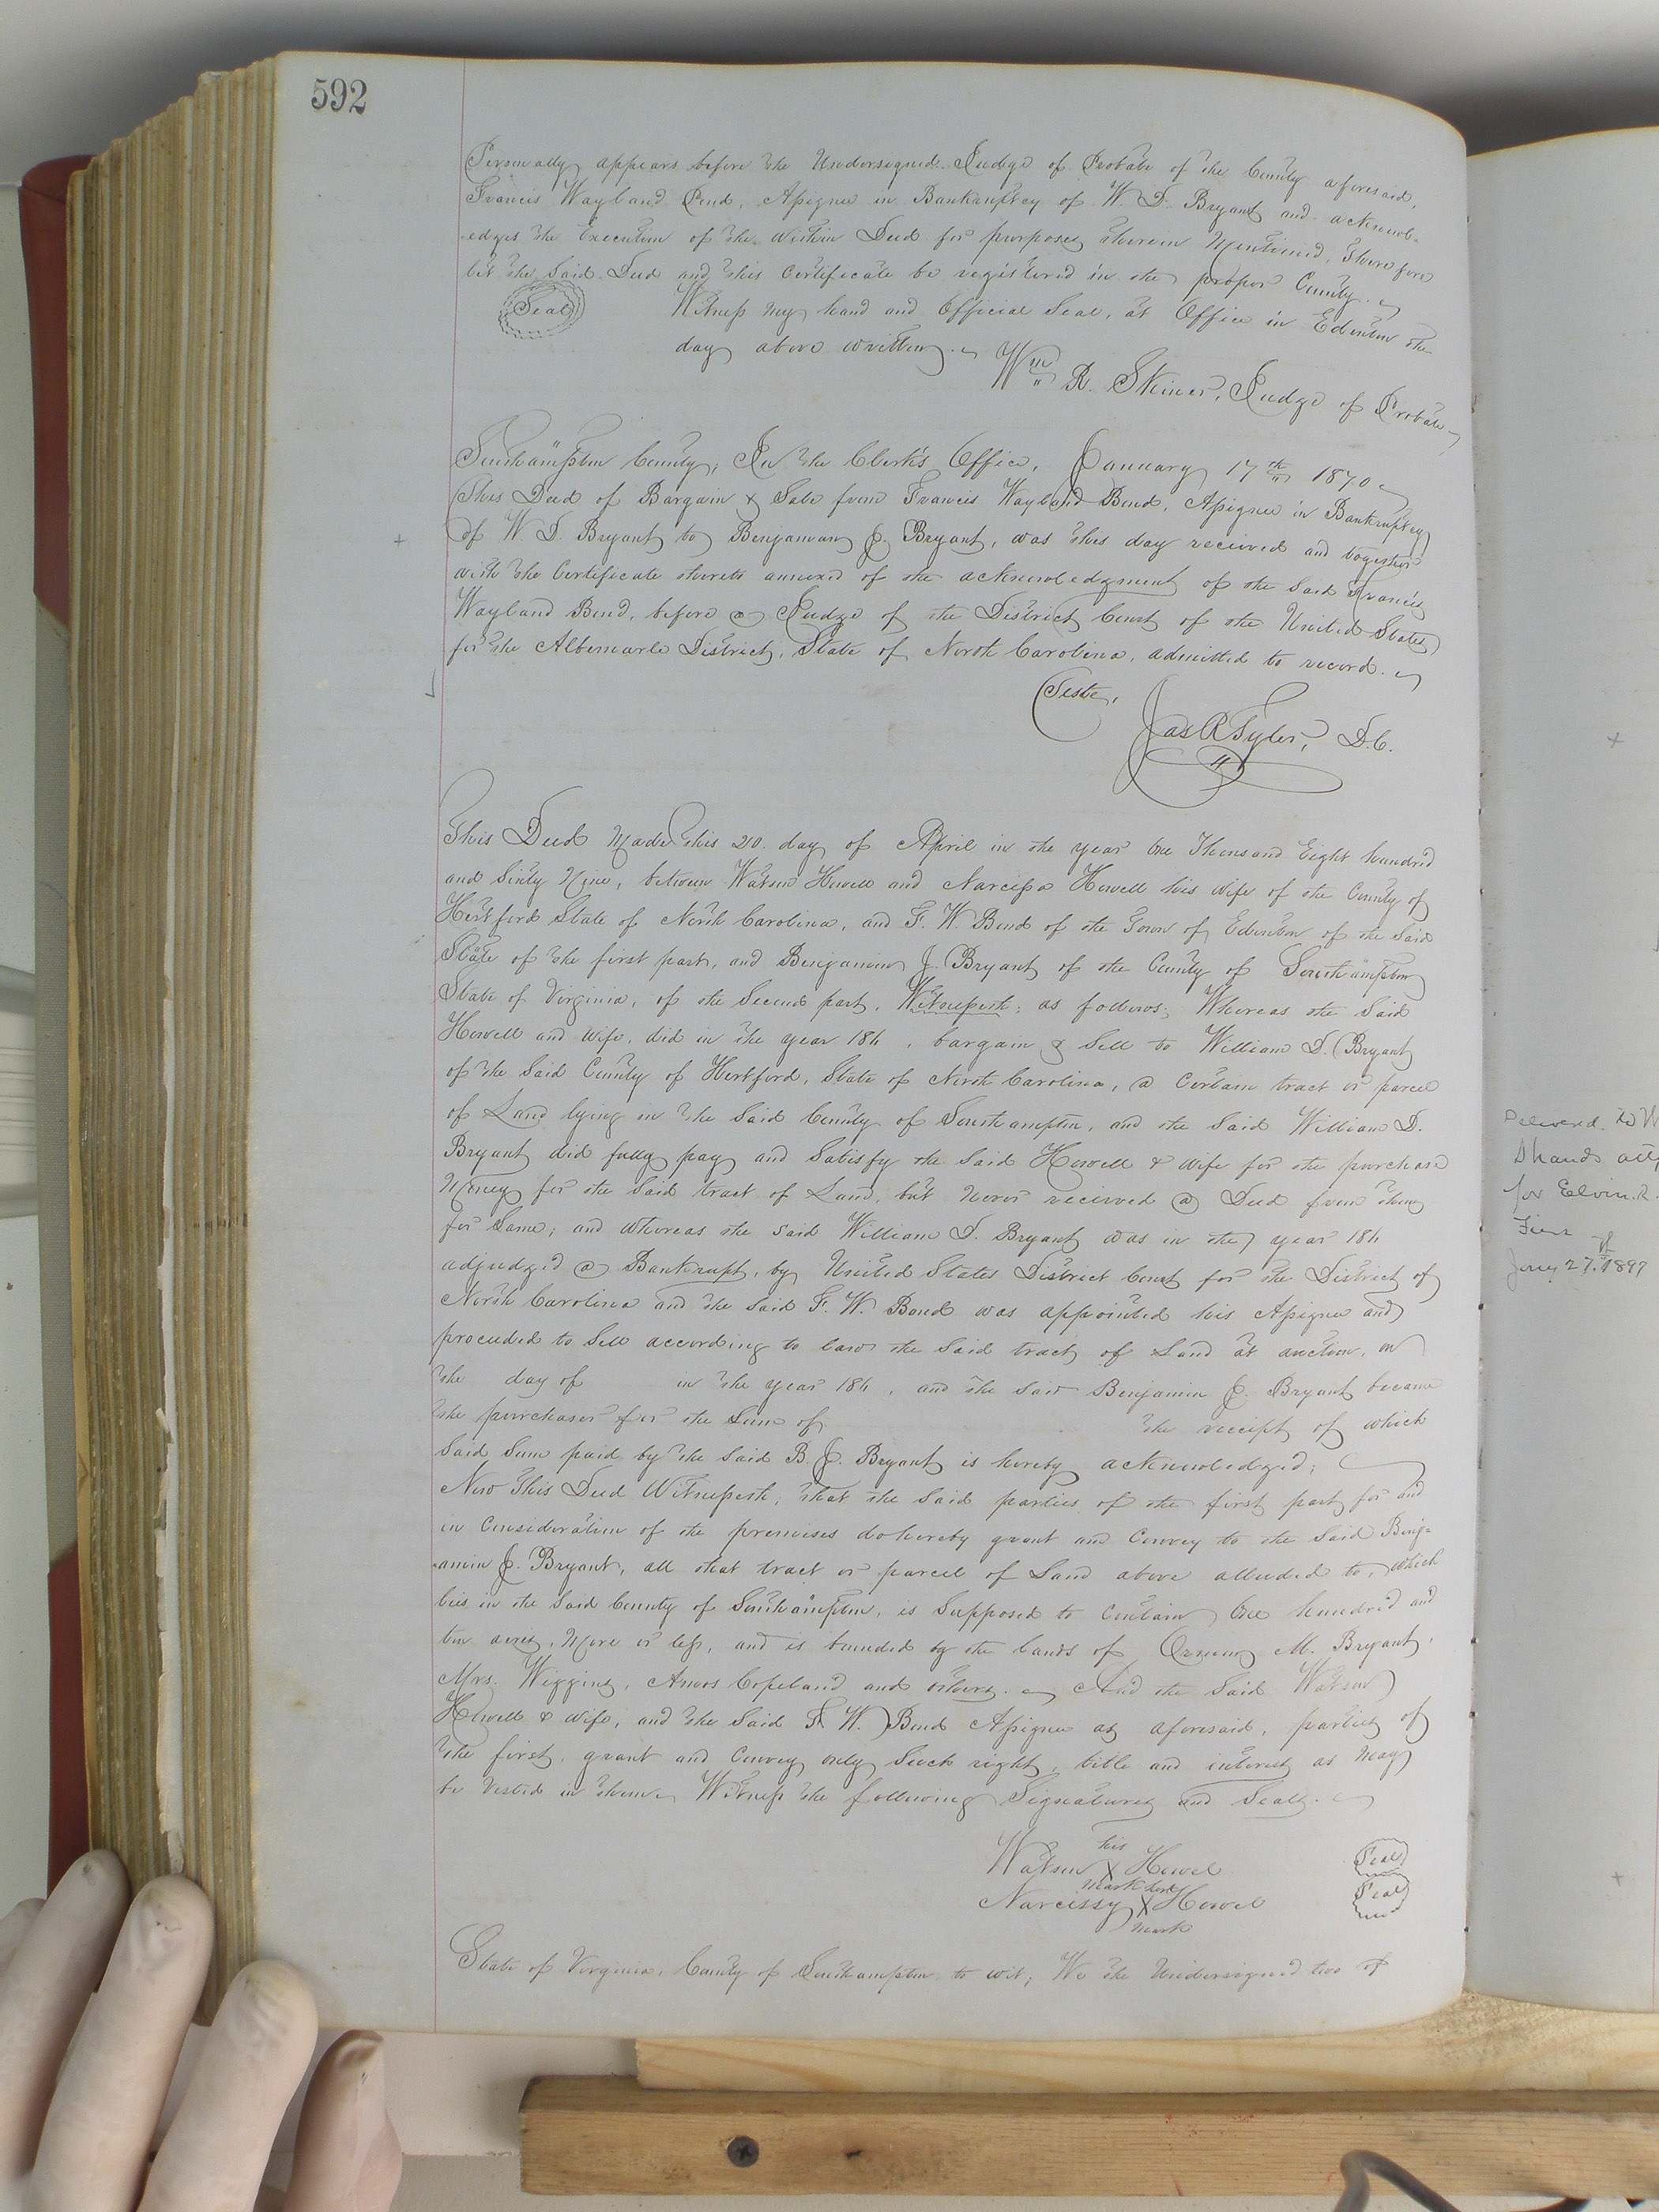 592
Personally appears before the Undersigned Judge of Probate of the County aforesaid,
Francis Wayland Bond, Assignee in Bankruptcy of W. D. Bryant and acknowl-
-edges the Execution of the within Deed for purposes therein Mentioned, Therefore
let the Said Deed and this Certificate be registered in the proper County.
Seal
Witness my hand and Official Seal, at Office in Edenton the
day above written.
Wm R. Skiner, Judge of Probate
Southampton County; In the Clerk's Office, January 17th 1870
This Deed of Bargain & Sale from Francis Wayland Bond, Assignee in Bankruptcy
of W. D. Bryant to Benjaman J. Bryant, was this day received and together
with the Certificate thereto annexed of the acknowledgment of the Said Francis
Wayland Bond, before a Judge of the District Court of the United States
for the Albemarle District, State of North Carolina, admitted to record.
Teste,
Jas R Tyler, D.C.
This Deed Made this 20. day of April in the year One Thousand Eight hundred
and Sixty Nine, between Watson Howell and Narcissa Howell his wife of the County of
Hertford State of North Carolina, and F. W. Bond of the Town of Edenton of the Said
State of the first part, and Benjamin J. Bryant of the County of Southampton
State of Virginia, of the Second part, Witnesseth; as follows; Whereas the Said
Howell and wife, did in the year 186 , bargain & Sell to William D. Bryant
of the Said County of Hertford, State of North Carolina, a Certain tract or parcel
of Land lying in the Said County of Southampton, and the Said William D.
Bryant did fully pay and Satisfy the Said Howell & wife for the purchase
Money for the Said tract of Land, but never received a Deed from them
for Same; and whereas the said William D. Bryant was in the year 186
adjudged a Bankrupt, by United States District Court for the District of
North Carolina and the Said F. W. Bond was appointed his Assignee and
proceeded to Sell according to law the Said tract of Land at auction, on
the day of in the year 186 , and the said Benjamin J. Bryant became
the purchaser for the Sum of the receipt of which
Said Sum paid by the Said B. J. Bryant is hereby acknowledged;
Now This Deed Witnesseth; that the Said parties of the first part for and
in Consideration of the premises do hereby grant and Convey to the Said Benj-
-amin J. Bryant, all that tract or parcel of Land above alluded to, which
lies in the Said County of Southampton, is Supposed to Contain One hundred and
ten acres, More or less, and is bounded by the lands of M. Bryant,
Mrs. Wiggins, Amos Copeland and others. And the Said Watson
Howell & wife, and the Said F. W. Bond Assignee as aforesaid, parties of
the first, grant and Convey only Such right, title and interest as may
be Vested in them. Witness the following Signatures and Seals.
his
Watson X Howel Seal
mark her
Narcissy X Howel Seal
mark
State of Virginia, County of Southampton to wit; We the Undersigned two of
Delivered to W
Shands atty
for Elvin R.
1897